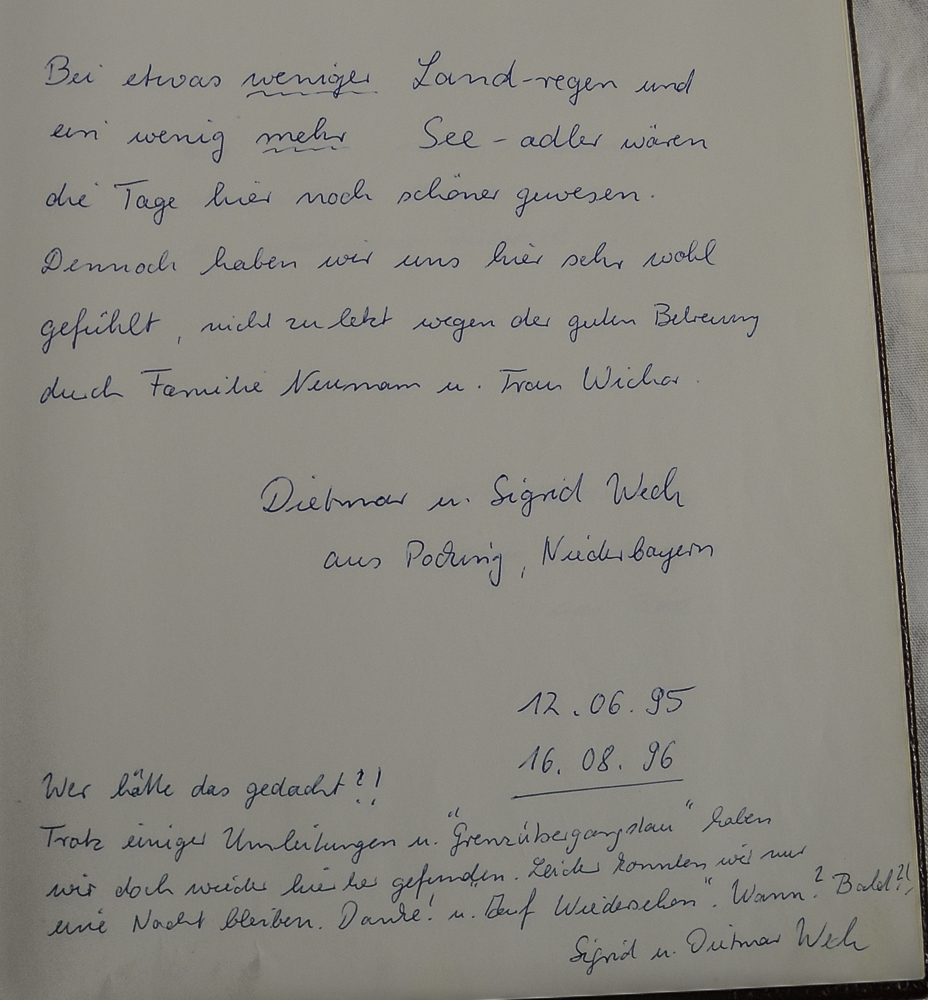 Bei etwas weniger Land-regen und
ein wenig mehr See-adler wären
die Tage hier noch schöner gewesen.
Dennoch haben wir uns hier sehr wohl
gefühlt, nicht zu letzt wegen der guten Betreuung
durch Familie Neumann u. Frau
Dietmar u. Sigrid Wech
aus Niederbayern
12.06.95
16.08.96
Wer hätte das gedacht?!
Trotz einiger Umleitungen u. "Grenzübergangstau" haben
wir doch wieder hierher gefunden. Leider konnten wir nur
eine Nacht bleiben. Danke! u. "Auf Wiedersehen". Wann? Bald?!
Sigrid u. Dietmar Wech